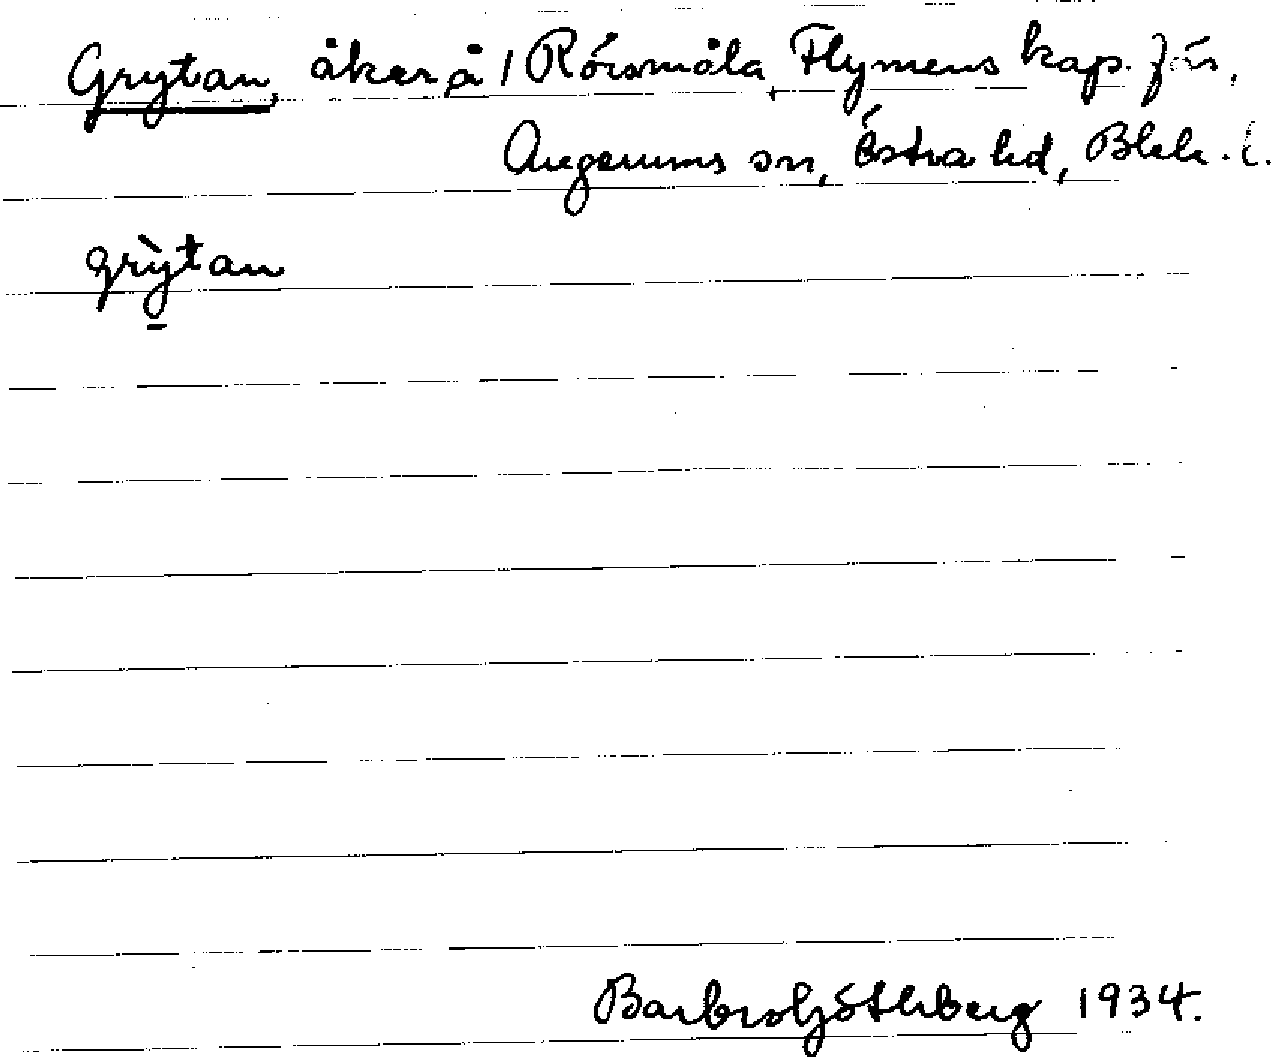 Grytan, åker å 1 Rörsmåla, Flymens kap. förs.
Augerums sn, Östra hd, Blek. l.
grỳtan
Barbro Göthberg 1934.